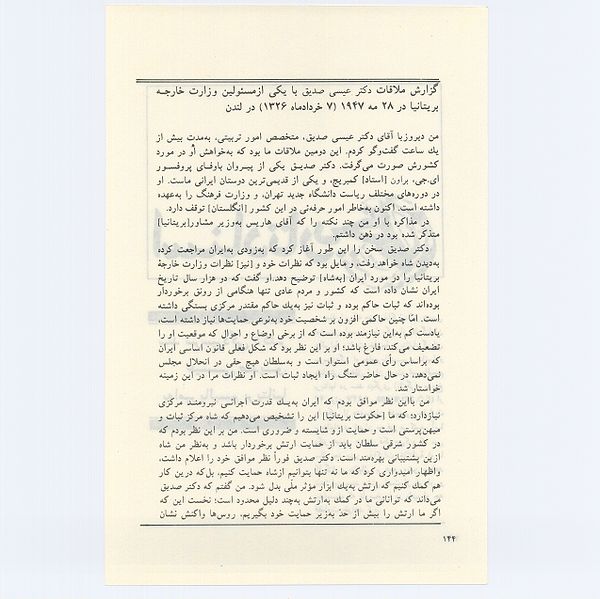 گزارش ملاقات دکتر عیسی صدیق با یکی ازمسئولین وزارت خارجه
بریتانیا در ۲۸ مه ۱۹۴۷ (۷ خردادماه ۱۳۲۶) در لندن
من دیروزبا آقای دکتر عیسی صدیق، متخصص امور تربیتی، به‌مدت بیش از
یك ساعت گفت‌وگو کردم. این دومین ملاقات ما بود که به‌خواهش او در مورد
کشورش صورت می‌گرفت. دکتر صدیق یکی از پیروان باوفای پروفسور
ای.جی. براون [استاد] کمبریج، و یکی از قدیمی‌ترین دوستان ایرانی ماست. او
در دوره‌های مختلف ریاست دانشگاه جدید تهران، و وزارت فرهنگ را به‌عهده
داشته است. اکنون به‌خاطر امور حرفه‌ئی در این کشور [انگلستان] توقف دارد.
در مذاکره با او من چند نکته را که آقای هاریس به‌وزیر مشاور[بریتانیا]
متذکر شده بود در ذهن داشتم.
دکتر صدیق سخن را این طور آغاز کرد که به‌زودی به‌ایران مراجعت کرده
به‌دیدن شاه خواهد رفت. و مایل بود که نظرات خود و [نیز] نظرات وزارت خارجهٔ
بریتانیا را در مورد ایران [به‌شاه] توضیح دهد.او گفت که دو هزار سال تاریخ
ایران نشان داده است که کشور و مردم عادی تنها هنگامی از رونق برخوردار
بوده‌اند که ثبات حاکم بوده و ثبات نیز به‌یك حاکم مقتدر مرکزی بستگی داشته
است. امّا چنین حاکمی افزون بر شخصیت خود به‌نوعی حمایت‌ها نیاز داشته است،
یادست کم به‌این نیازمند بوده است که از برخی اوضاع و احوال که موقعیت او را
تضعیف می‌کند، فارغ باشد؛ او بر این نظر بود که شکل فعلی قانون اساسی ایران
که براساس رأی عمومی استوار است و به‌سلطان هیچ حقی در انحلال مجلس
نمی‌دهد، در حال حاضر سنگ راه ایجاد ثبات است. او نظرات مرا در این زمینه
خواستار شد.
من بااین نظر موافق بودم که ایران به‌یك قدرت اجرائی نیرومند مرکزی
نیازدارد؛ که ما [حکومت بریتانیا] این را تشخیص می‌دهیم که شاه مرکز ثبات و
میهن‌پرستی است و حمایت ازو شایسته و ضروری است. من بر این نظر بودم که
در کشور شرقی سلطان باید از حمایت ارتش برخوردار باشد و به‌نظر من شاه
ازین پشتیبانی بهره‌مند است. دکتر صدیق فوراً نظر موافق خود را اعلام داشت،
واظهار امیدواری کرد که ما نه تنها بتوانیم ازشاه حمایت کنیم، بل‌که درین کار
هم کمك کنیم که ارتش به‌یك ابزار مؤثر ملّی بدل شود. من گفتم که دکتر صدیق
می‌داند که توانائی ما در کمك به‌ارتش به‌چند دلیل محدود است؛ نخست این که
اگر ما ارتش را بیش از حدّ به‌زیر حمایت خود بگیریم، روس‌ها واکنش نشان
۱۴۴